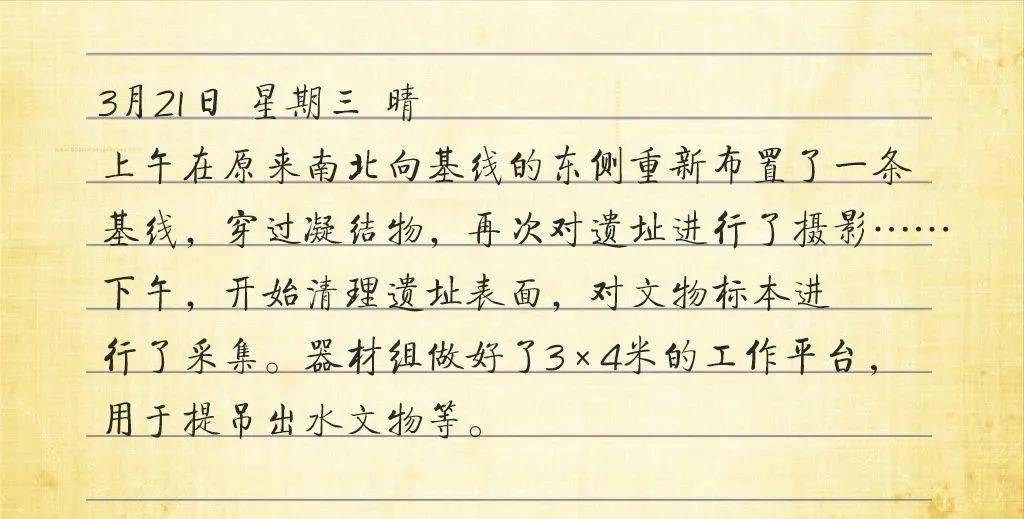 3月21日 星期三 晴
上午在原来南北向基线的东侧重新布置了一条
基线，穿过凝结物，再次对遗址进行了摄影……
下午，开始清理遗址表面，对文物标本进
行了采集。器材组做好了3×4米的工作平台，
用于提吊出水文物等。